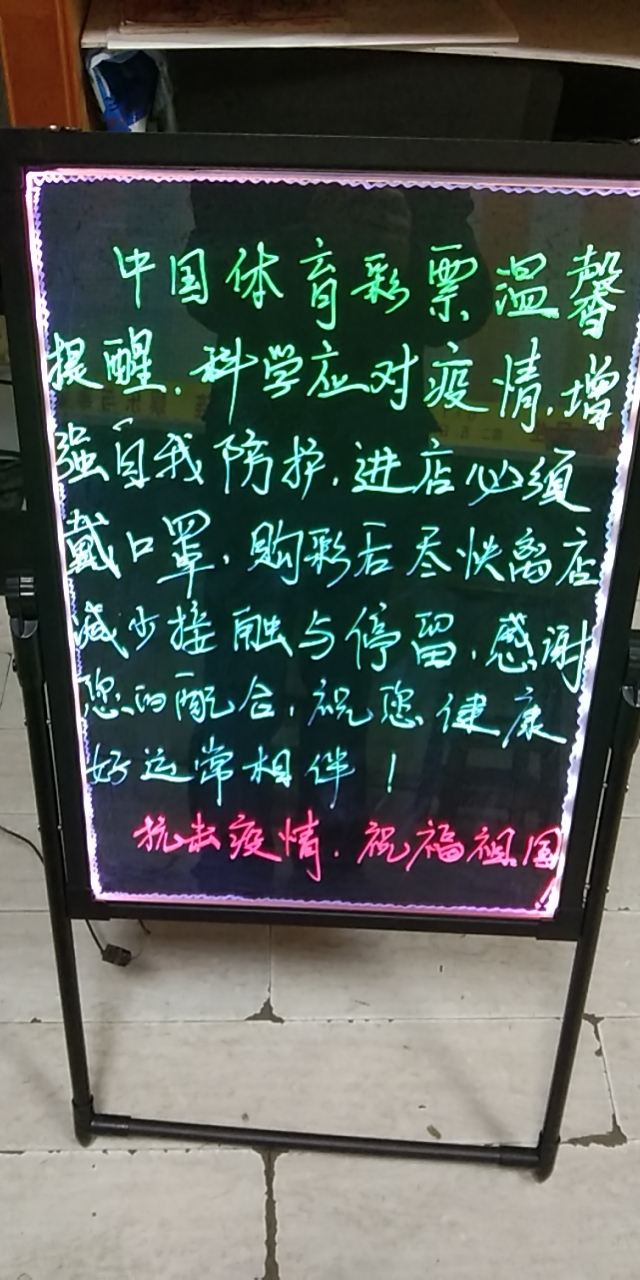 中国体育彩票温馨
提醒.科学应对疫情.增
强自我防护.进店必须
戴口罩.购彩后尽快离店
减少接触与停留.感谢
您的配合.祝您健康
好运常相伴!
抗击疫情.祝福祖国!